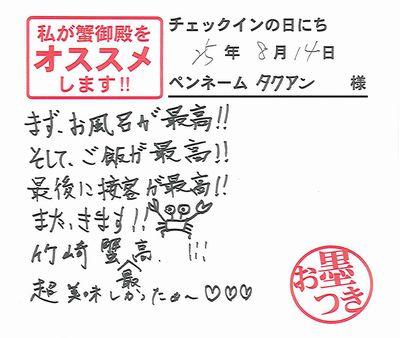 私が蟹御殿を
オススメ
します!!
チェックインの日にち
25年8月14日
ペンネーム タクアン 様
まず、お風呂が最高!!
そして、ご飯が最高!!
最後に接客が最高!!
また、きます!!
竹崎蟹最高!!!
超美味しかったぁ〜♡♡♡
お墨つき